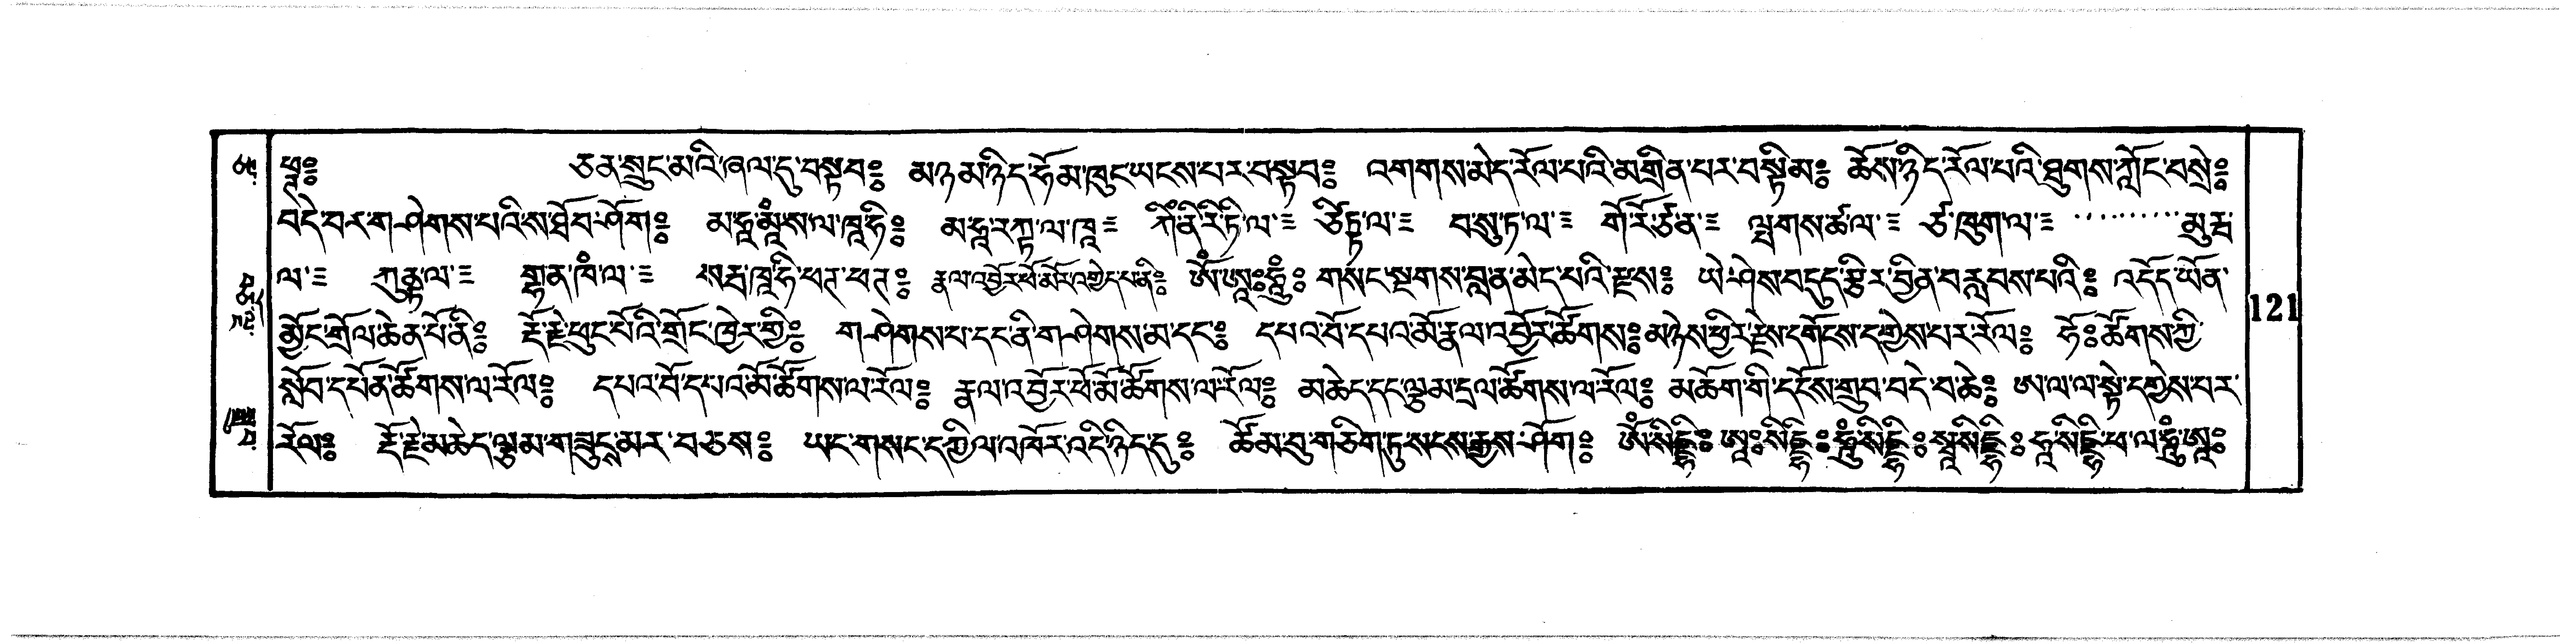 ཕཱ༔ ཅན་སྲུང་མའི་ཞལ་དུ་བསྟབ༔ མཉམ་ཉིད་ཧོམ་ཁུང་ཡངས་པར་བསྟབ༔ འགགས་མེད་རོལ་པའི་མགྲིན་པར་བསྟིམ༔ ཆོས་ཉིད་རོལ་པའི་ཐུགས་ཀློང་བསྲེ༔
བདེ་བར་གཤེགས་པའི་ས་ཐོབ་ཤོག༔ མ་ཧཱ་མཱཾ་ས་ལ་ཁཱ་ཧི༔ མ་ཧཱ་རཀྟ་ལ་ཁཱ༔ ཀིཾ་ནི་རི་ཏི་ལ༔ ཙིཏྟ་ལ༔ བ་སུ་ཏ་ལ༔ གོ་རོ་ཙན༔ ལྤགས་ཚལ༔ ཙ་ཁུག་ལ༔ མུ་ཏྲ་
ལ༔ ཀུནྟ་ལ༔ སྟྭན་ཁཾ་ལ༔ སརྦ་ཁཱ་ཧི་ཕཊ་ཕཊ༔ རྣལ་འབྱོར་ཕོ་མོར་འགྱེད་པ་ནི༔ ཨོཾ་ཨཱཿཧཱུྃ༔ གསང་སྔགས་བླན་མེད་པའི་རྫས༔ ཡེ་ཤེས་བདུད་རྩིར་བྱིན་བརླབས་པའི༔ འདོད་ཡོན་
མྱོང་གྲོལ་ཆེན་པོ་ནི༔ རྡོ་རྗེ་ཕུང་པོའི་གྲོང་ཁྱེར་གྱི༔ གཤེགས་པ་དང་ནི་གཤེགས་མ་དང༔ དཔའ་བོ་དཔའ་མོ་རྣལ་འབྱོར་ཚོགས༔ མཉེས་ཕྱིར་རྗེས་དགོངས་དགྱེས་པར་རོལ༔ ཧོ༔ ཚོགས་ཀྱི་
སློབ་དཔོན་ཚོགས་ལ་རོལ༔ དཔའ་བོ་དཔའ་མོ་ཚོགས་ལ་རོལ༔ རྣལ་འབྱོར་ཕོ་མོ་ཚོགས་ལ་རོལ༔ མཆེད་དང་ལྕམ་དྲལ་ཚོགས་ལ་རོལ༔ མཆོག་གི་དངོས་གྲུབ་བདེ་བ་ཆེ༔ ཨ་ལ་ལ་སྟེ་དགྱེས་པར་
རོལ༔ རྡོ་རྗེ་མཆེད་ལྕམ་གཟུང་མར་བཅས༔ ཡང་གསང་དཀྱིལ་འཁོར་འདི་ཉིད་དུ༔ ཚོམ་བུ་གཅིག་ཏུ་སངས་རྒྱས་ཤོག༔ ཨོཾ་སིདྡྷི༔ ཨཱཿསིདྡྷི༔ ཧཱུྃ་སིདྡྷི༔ སྭཱ་སིདྡྷི༔ ཧཱ་སིདྡྷི་ཕ་ལ་ཧཱུྃ་ཨཱཿ
121